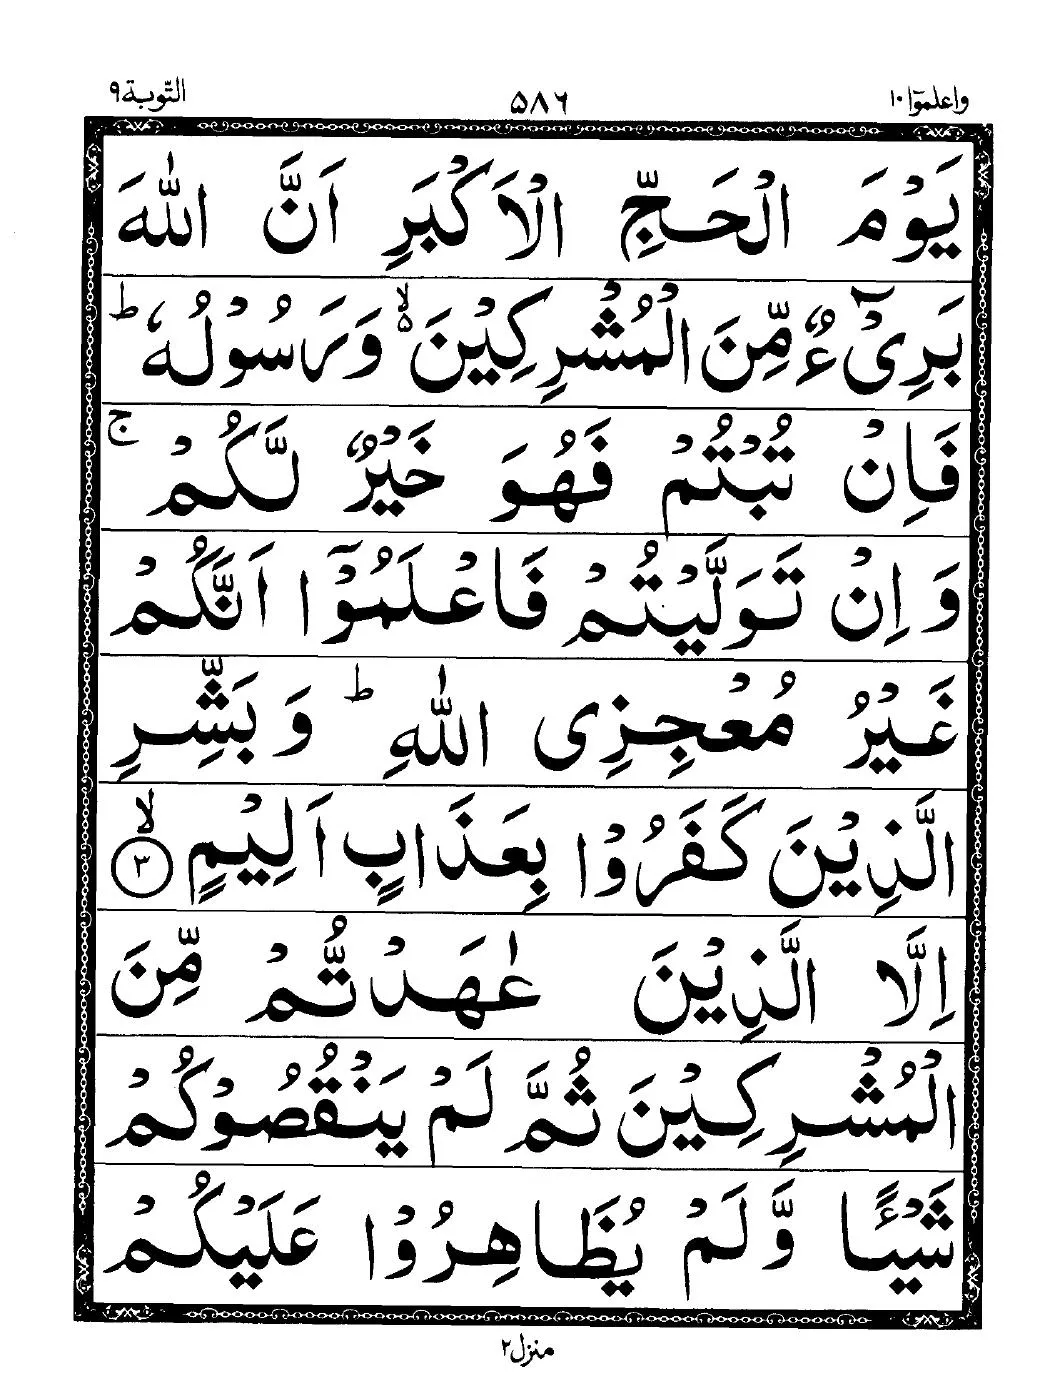 واعلموٓا ١٠ ۵۸۶ التّوبة ۹
یَوْمَ الْحَجِّ الْاَكْبَرِ اَنَّ اللّٰهَ
بَرِیْٓءٌ مِّنَ الْمُشْرِكِیْنَ ۙ۬ وَرَسُوْلُهٗ ؕ
فَاِنْ تُبْتُمْ فَهُوَ خَیْرٌ لَّكُمْ ۚ
وَ اِنْ تَوَلَّیْتُمْ فَاعْلَمُوْۤا اَنَّكُمْ
غَیْرُ مُعْجِزِی اللّٰهِ ؕ وَ بَشِّرِ
الَّذِیْنَ كَفَرُوْا بِعَذَابٍ اَلِیْمٍ ۙ۝۳
اِلَّا الَّذِیْنَ عٰهَدْتُّمْ مِّنَ
الْمُشْرِكِیْنَ ثُمَّ لَمْ یَنْقُصُوْكُمْ
شَیْـًٔا وَّ لَمْ یُظَاهِرُوْا عَلَیْكُمْ
منزل ۲